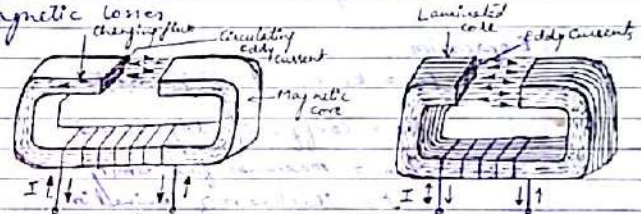 Magnetic losses
Changing flux
Circulating
eddy
current
Magnetic
core
I
Laminated
core
Eddy Currents
I